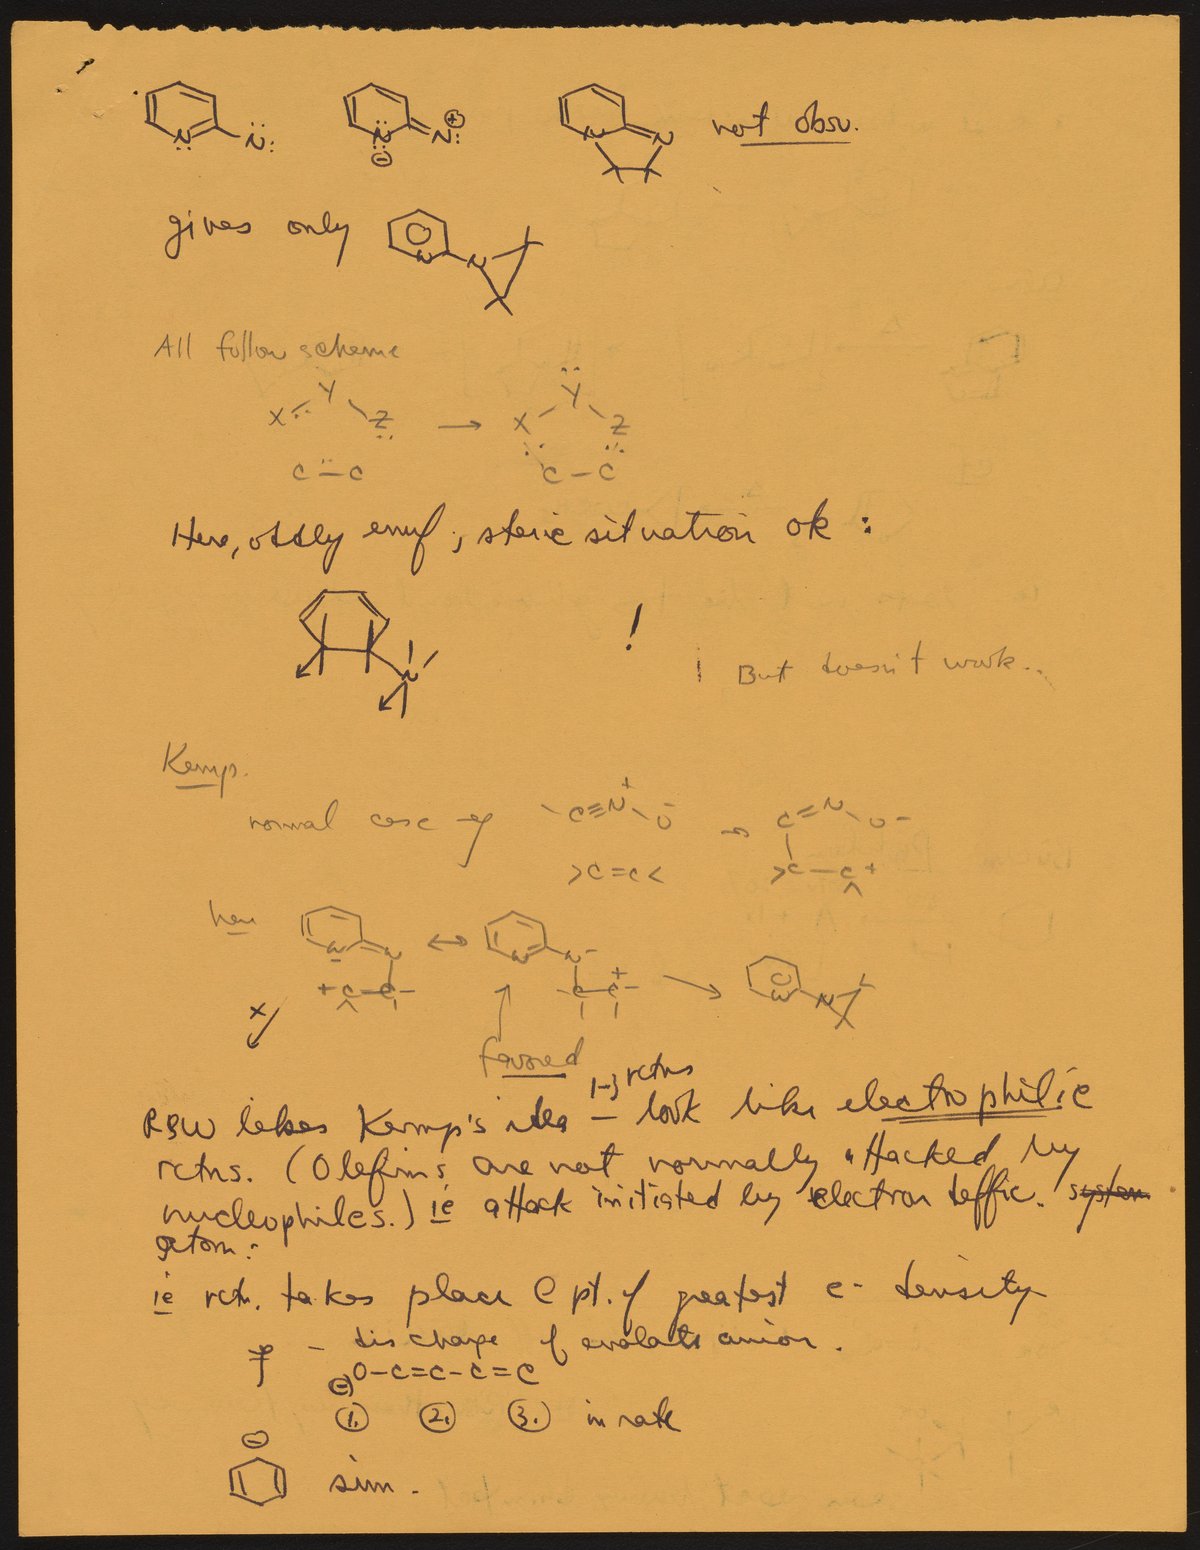 N N: N ⊖ N: ⊕ N N not obsv.
gives only N N
All follow scheme
X Y Z → X Y Z
C C C - C
Here, oddly enuf, steric situation ok :
N !
! But doesn't work..
Kemp.
normal case eg - C≡N⁺ - O⁻ → C=N - O -
>C=C< >C - C +
here N N ↔ N N - → N N
+ C - C - - C - C -
x
favored
1-3 rctns
RBW likes Kemp's idea — look like electrophilic
rctns. (Olefins are not normally attacked by
nucleophiles.) ie attack initiated by electron deffic. system
atom:
ie rctn. takes place @ pt. of greatest e- density
cf - discharge of enolate anion.
⊖O-C=C-C=C
①. ②. ③. in rate
⊖
sim.